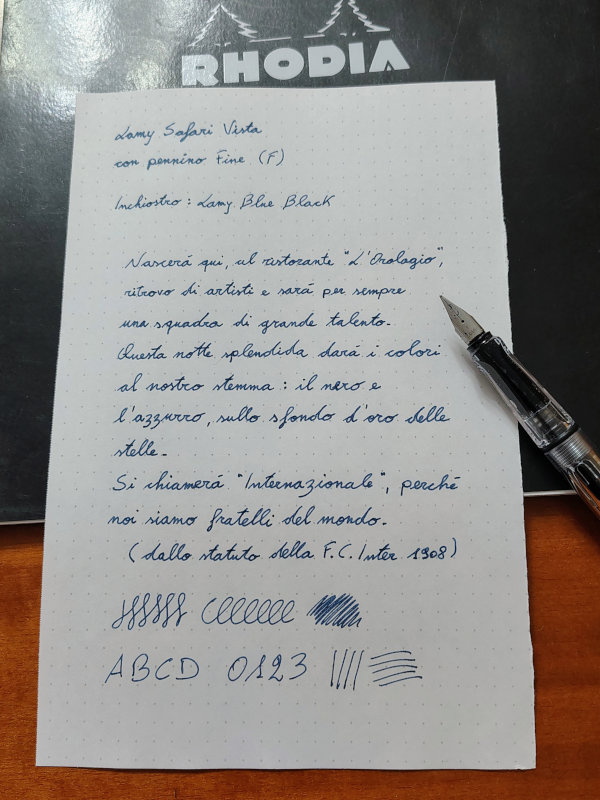 RHODIA
Lamy Safari Vista
con pennino Fine (F)
Inchiostro: Lamy Blue Black
Nascerà qui, al ristorante "L'Orologio",
ritrovo di artisti e sarà per sempre
una squadra di grande talento.
Questa notte splendida darà i colori
al nostro stemma: il nero e
l'azzurro, sullo sfondo d'oro delle
stelle.
Si chiamerà "Internazionale", perché
noi siamo fratelli del mondo.
(dallo statuto della F.C. Inter 1908)
ABCD 0123